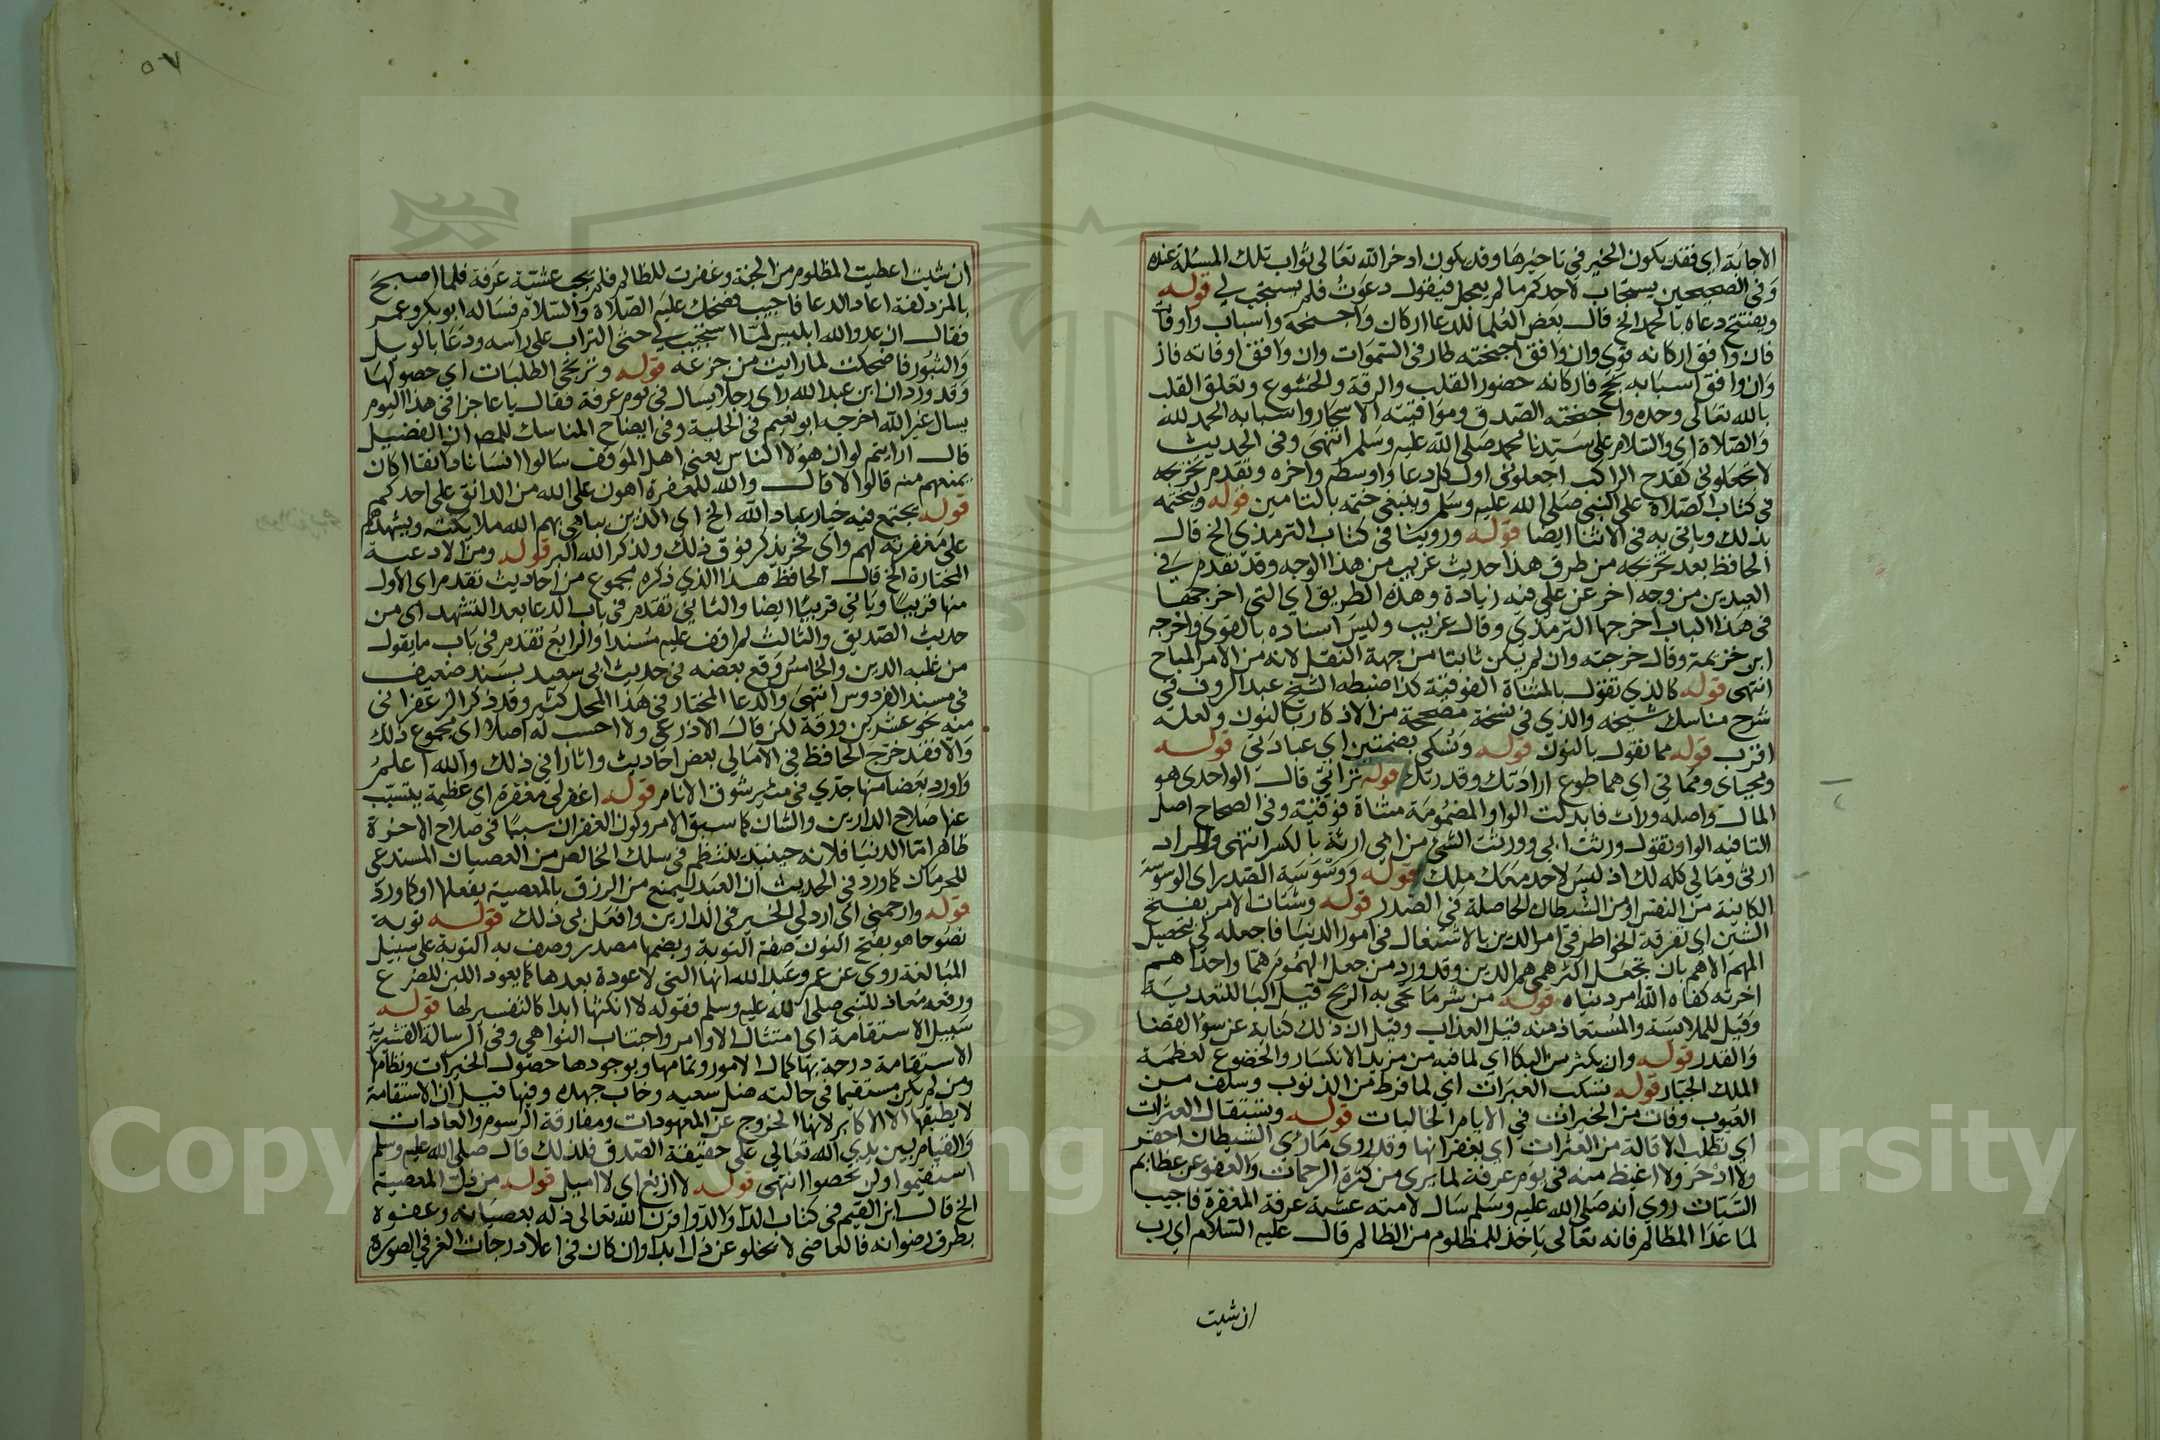 الاجابة اي فقد يكون الخير في تاخيرها وقد يكون ادخر الله تعالى ثواب تلك المسئلة عنده
وفي الصحيحين يستجاب لاحدكم ما لم يعجل فيقول دعوت فلم يستجب لي قوله
ويفتتح دعاه بالحمد الخ قال بعض العلما للدعا اركان واجنحة واسباب واوقات
فان وافق اركانه قوي وان وافق اجنحته طار في السموات وان وافق اوقاته فاز
وان وافق اسبابه نجح فاركانه حضور القلب والرقة والخشوع وتعلق القلب
بالله تعالى وحده واجنحته الصدق ومواقيته الاسحار واسبابه الحمد لله
والصلاة اي والسلام على سيدنا محمد صلى الله عليه وسلم انتهى وفي الحديث
لا تجعلوني كقدح الراكب اجعلوني اول كل دعا واوسطه واخره وتقدم تخريجه
في كتاب الصلاة على النبي صلى الله عليه وسلم وينبغي ختمه بالتامين قوله وليختمه
بذلك وياتي به في الاثنا ايضا قوله وروينا في كتاب الترمذي الخ قال
الحافظ بعد تخريجه من طرق هذا حديث غريب من هذا الوجه وقد تقدم في
العيدين من وجه اخر عن علي فيه زيادة وهذه الطريق اي التي اخرجها
في هذا الباب اخرجها الترمذي وقال غريب وليس اسناده بالقوي واخرجه
ابن خزيمة وقال خرجته وان لم يكن ثابتا من جهة النقل لانه من الامر المباح
انتهى قوله كالذي تقول بالمثناة الفوقية كذا ضبطه الشيخ عبد الروف في
شرح مناسك شيخه والذي في نسخة مصححة من الاذكار بالنون ولعله
اقرب قوله مما نقول بالنون قوله ونسكي بضمتين اي عبادتي قوله
ومحياي ومماتي اي هما طوع ارادتك وقدرتك قوله تراثي قال الواحدي هو
المال واصله وراث فابدلت الواو المضمومة مثناة فوقية وفي الصحاح اصل
التا فيه الواو تقول ورثت ابي وورثت الشي من ابي ارثه بالكسر انتهى والمراد
ارثي ومالي كله لك اذ ليس لاحد معك ملك قوله ووسوسة الصدر اي الوسوسة
الكاينة من النفس او من الشيطان الحاصلة في الصدر قوله وشتات الامر بفتح
الشين اي تفرقة الخواطر في امر الدين بالاشتغال في امور الدنيا فاجعله لي بتحصيل
المهم الاهم بان تجعل اكثر همي هم الدين وقد ورد من جعل الهموم هما واحدا هم
اخرته كفاه الله امر دنياه قوله من شر ما تجي به الريح قيل البا للتعدية
وقيل للملابسة والمستعاذ منه قيل العذاب وقيل ان ذلك كناية عن سو القضا
والقدر قوله وان يكثر من البكا اي لما فيه من مزيد الانكسار والخضوع لعظمة
الملك الجبار قوله تسكب العبرات اي لما فرط من الذنوب وسلف من
العيوب وفات من الخيرات في الايام الخاليات قوله وتستقال العثرات
اي تطلب الاقالة من العثرات اي بغفرانها وقد روي ما رئي الشيطان احقر
ولا ادحر ولا اغيظ منه في يوم عرفة لما يرى من كثرة الرحمات والعفو عن عظايم
السيات روي انه صلى الله عليه وسلم سال لامته عشية عرفة المغفرة فاجيب
لما عدا المظالم فانه تعالى ياخذ للمظلوم من الظالم قال عليه السلام اي رب
ان شيت
٥٧
ان شيت اعطيت المظلوم من الجنة وغفرت للظالم فلم يجب عشية عرفة فلما اصبح
بالمزدلفة اعاد الدعا فاجيب فضحك عليه الصلاة والسلام فساله ابو بكر وعمر
فقال ان عدو الله ابليس لما استجيب لي حثى التراب على راسه ودعا بالويل
والثبور فاضحكت لما رايت من جزعه قوله وترتجى الطلبات اي حصولها
وقد ورد ان ابن عبد الله راى رجلا يسال في يوم عرفة فقال يا عاجز افي هذا اليوم
يسال غير الله اخرجه ابو نعيم في الحلية وفي ايضاح المناسك للمص ان الفضيل
قال ارايتم لو ان هولا الناس يعني اهل الموقف سالوا انسانا دانقا اكان
يمنعهم منه قالوا لا قال والله للمغفرة اهون على الله من الدانق على احدكم
قوله يجتمع فيه خيار عباد الله الخ اي الذين يباهي بهم الله ملايكته ويشهدهم
على مغفرته لهم واي فخر يذكر فوق ذلك ولذكر الله اكبر قوله ومن الادعية
المختارة الخ قال الحافظ هذا الذي ذكره مجموع من احاديث تقدم اي الاول
منها قريبا وياتي قريبا ايضا والثاني تقدم في باب الدعا بعد التشهد اي من
حديث الصديق والثالث لم اقف عليه مسندا والرابع تقدم في باب ما يقول
من غلبه الدين والخامس وقع بعضه في حديث ابي سعيد بسند ضعيف
في مسند الفردوس انتهى والدعا المختار في هذا المحل كثير وقد ذكر الزعفراني
منه نحو عشرين ورقة لكن قال الاذرعي ولا احسب له اصلا اي مجموع ذلك
والا فقد خرج الحافظ في الامالي بعض احاديث واثارا في ذلك والله اعلم
واورد بعضا منها جدي في مثير شوق الانام قوله اغفر لي مغفرة اي عظيمة يتسبب
عنها صلاح الدارين والشان كما سبق الامر وكون الغفران سببا في صلاح الاخرة
ظاهر اما الدنيا فلانه حينيذ ينتظم في سلك الخالص من العصيان المستدعي
للحرمان كما ورد في الحديث ان العبد ليمنع من الرزق بالمعصية يفعلها او كما ورد
قوله وارحمني اي ارد لي الخير في الدارين وافعل بي ذلك قوله توبة
نصوحا هو بفتح النون صفة التوبة وبضمها مصدر وصف به التوبة على سبيل
المبالغة روي عن عمر وعبد الله انها التي لا عودة بعدها كما يعود اللبن للضرع
ورفعه معاذ للنبي صلى الله عليه وسلم فقوله لا انكثها ابدا كالتفسير لها قوله
سبيل الاستقامة اي امتثال الاوامر واجتناب النواهي وفي الرسالة القشيرية
الاستقامة درجة بها كمال الامور وتمامها وبوجودها حصول الخيرات ونظامها
ومن لم يكن مستقيما في حالته ضل سعيه وخاب جهده وفيها قيل ان الاستقامة
لا يطيقها الا الاكابر لانها الخروج عن المعهودات ومفارقة الرسوم والعادات
والقيام بين يدي الله تعالى على حقيقة الصدق فلذلك قال صلى الله عليه وسلم
استقيموا ولن تحصوا انتهى قوله لا ازيغ اي لا اميل قوله من ذل المعصية
الخ قال ابن القيم في كتاب الدا والدوا قرن الله تعالى ذله بعصيانه وعفوه
بطرق رضوانه فالعاصي لا يخلو عن ذل ابدا وان كان في اعلا درجات العز في الصورة